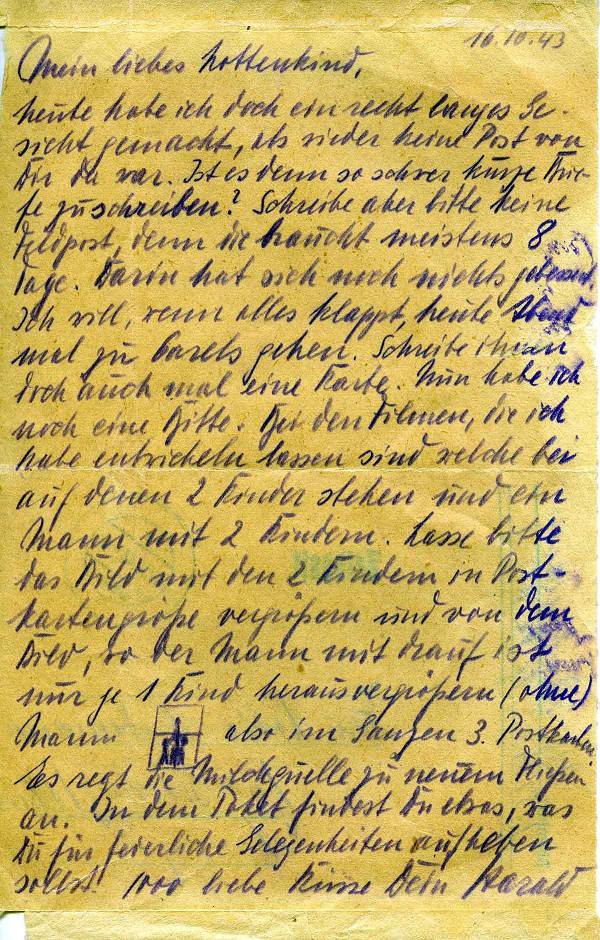 16.10.43
Mein liebes Lottenkind,
heute habe ich doch ein recht langes Ge-
sicht gemacht, als wieder keine Post von
Dir da war. Ist es denn so schwer kurze Brie-
fe zu schreiben? Schreibe aber bitte keine
Feldpost, denn die braucht meistens 8
Tage. Darin hat sich noch nichts gebessert.
Ich will, wenn alles klappt, heute Abend
mal zu gehen. Schreibe ihnen
doch auch mal eine Karte. Nun habe ich
noch eine Bitte. Bei den Filmen, die ich
habe entwickeln lassen sind welche bei
auf denen 2 Kinder stehen und ein
Mann mit 2 Kindern. Lasse bitte
das Bild mit den 2 Kindern in Post-
kartengröße vergrößern und von dem
Bild, wo der Mann mit drauf ist
nur je 1 Kind herausvergrößern (ohne)
Mann also im Ganzen 3. Postkarten.
Es regt die Milchquelle zu neuem Fließen
an. In dem Paket findest Du etwas, was
Du für feierliche Gelegenheiten aufheben
sollst! 1000 liebe Küsse Dein Harald